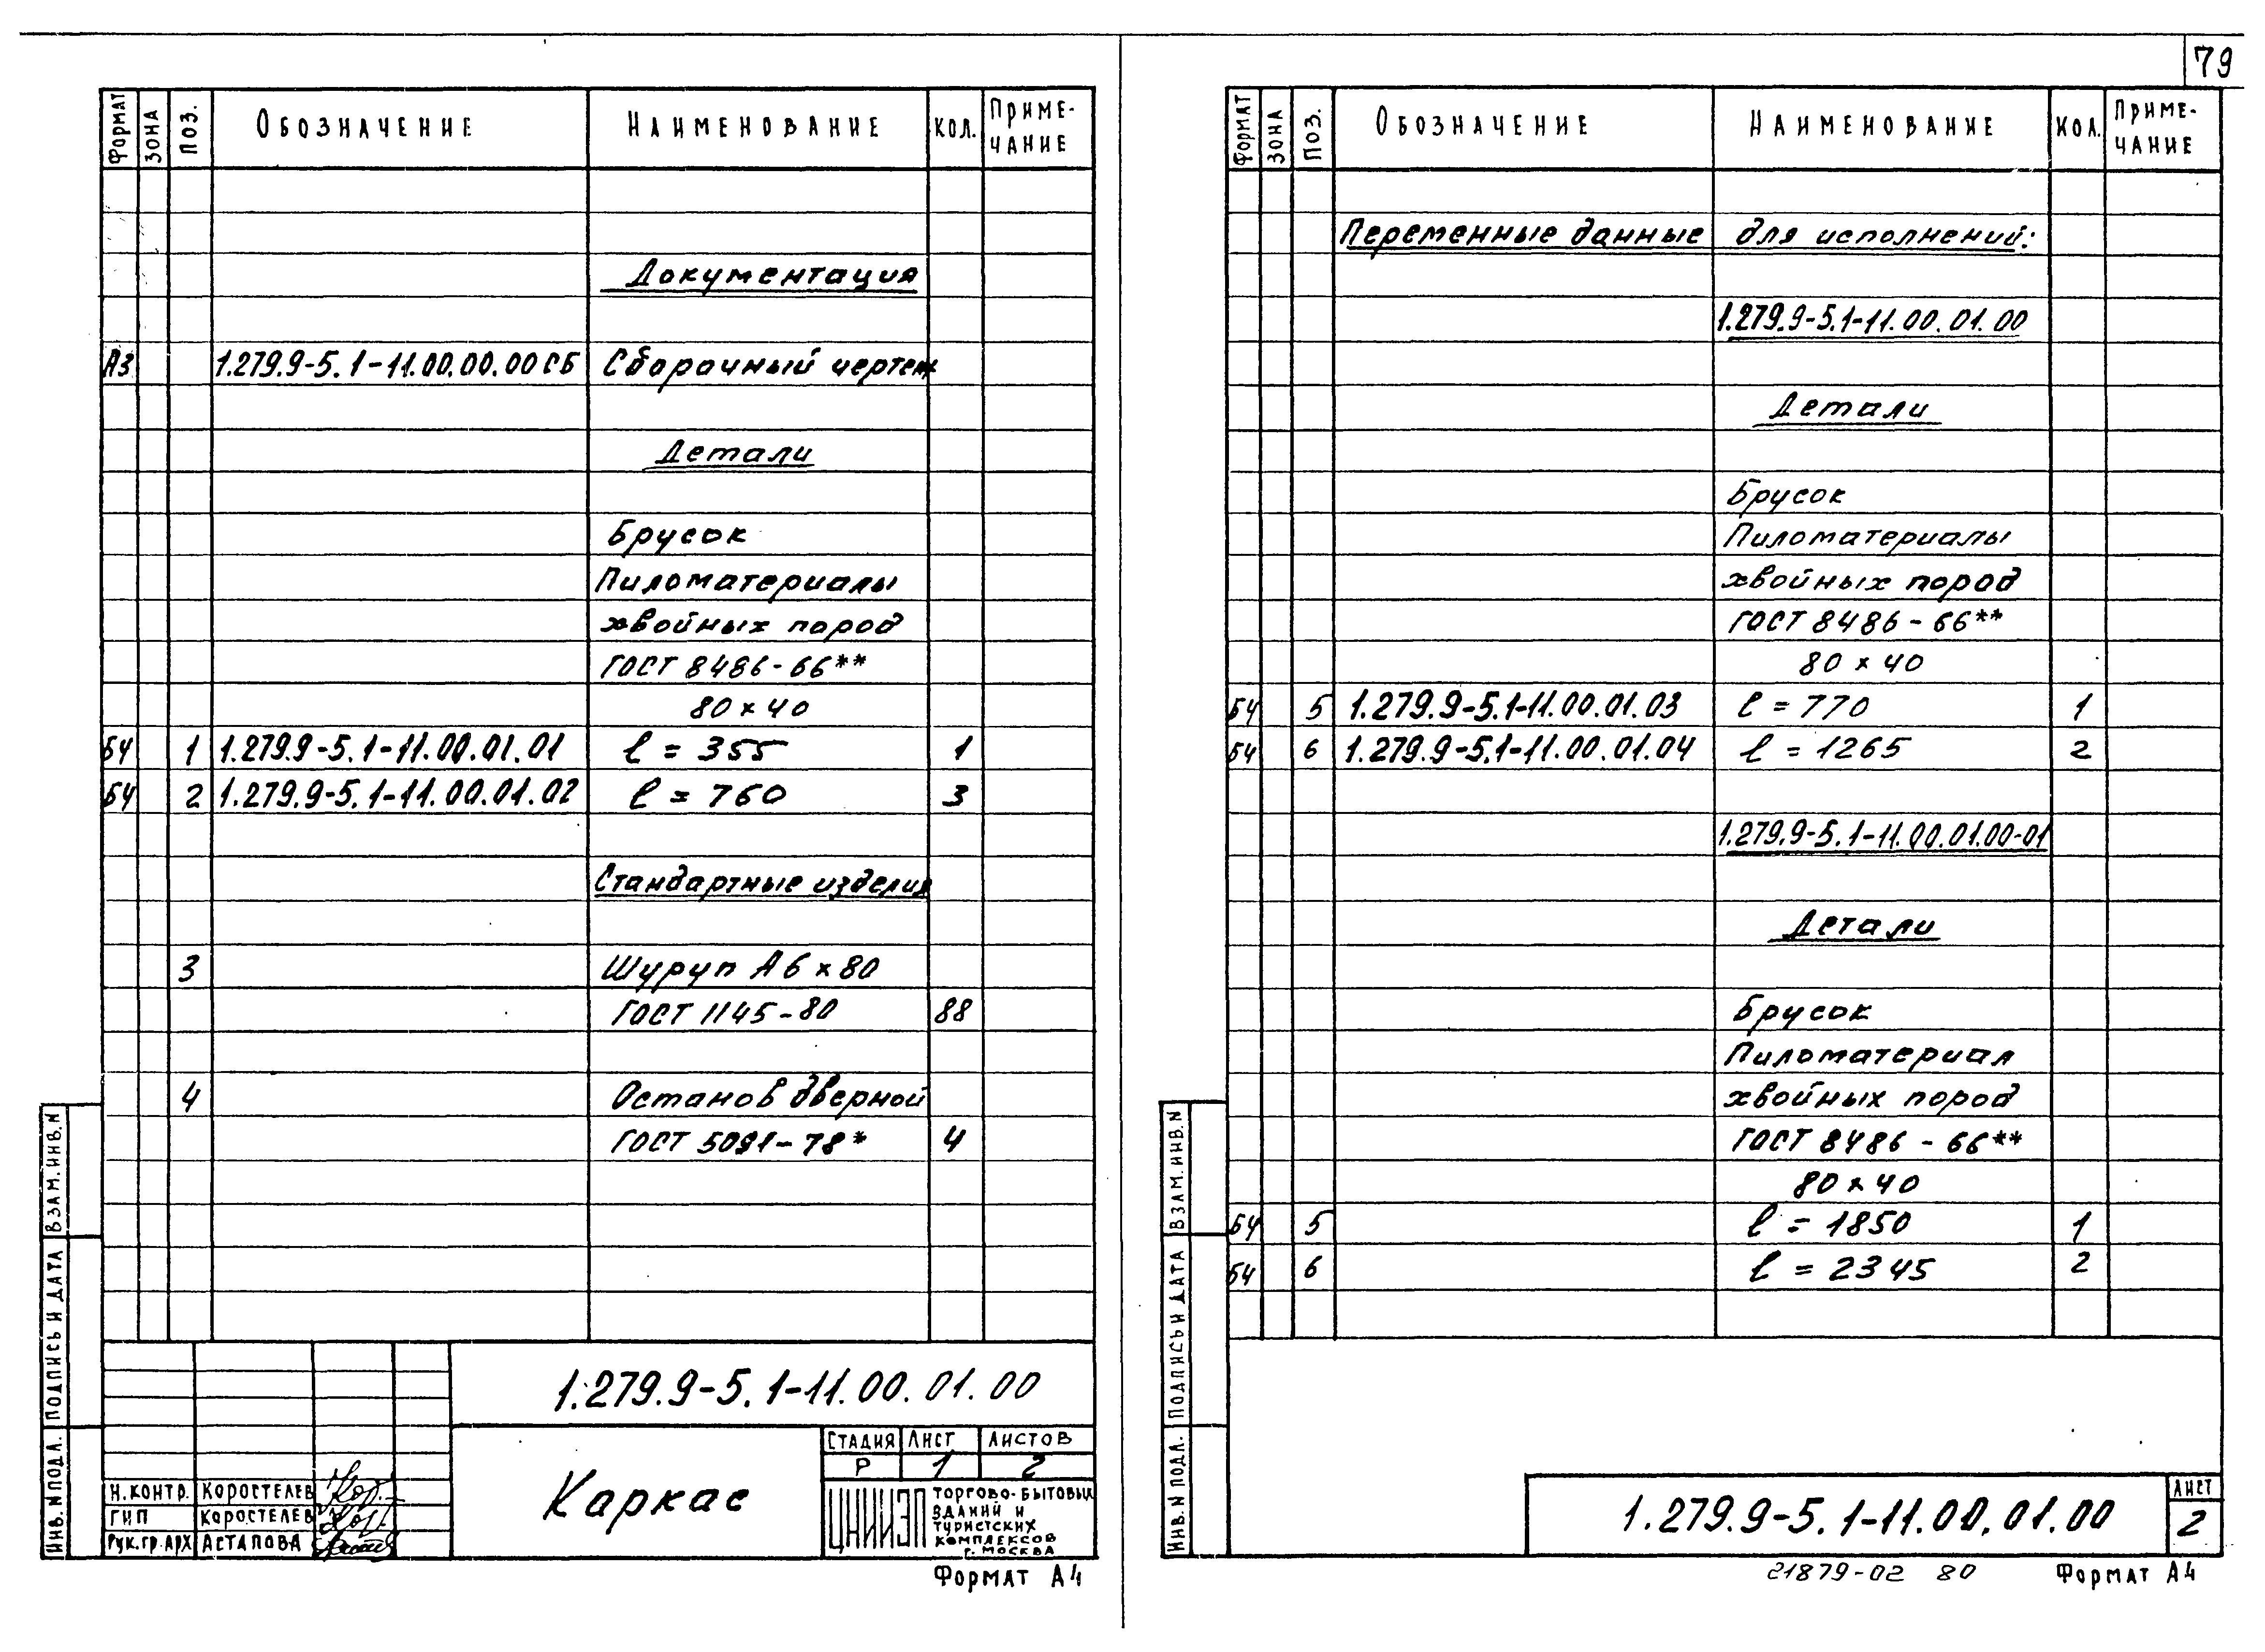 79
ФОРМАТ ЗОНА ПОЗ. ОБОЗНАЧЕНИЕ НАИМЕНОВАНИЕ КОЛ. ПРИМЕ-
ЧАНИЕ
Документация
А3 1.279.9-5.1-11.00.00.00СБ Сборочный чертеж
Детали
Брусок
Пиломатериалы
хвойных пород
ГОСТ 8486-66**
80×40
БЧ 1 1.279.9-5.1-11.00.01.01 ℓ=355 1
БЧ 2 1.279.9-5.1-11.00.01.02 ℓ=760 3
Стандартные изделия
3 Шуруп А6×80
ГОСТ 1145-80 88
4 Останов дверной
ГОСТ 5091-78* 4
ВЗАМ.ИНВ.N
ПОДПИСЬ И ДАТА
ИНВ.N ПОДЛ.
1.279.9-5.1-11.00.01.00
СТАДИЯ ЛИСТ ЛИСТОВ
Р 1 2
Каркас
Н.КОНТР. КОРОСТЕЛЕВ
ГИП КОРОСТЕЛЕВ
РУК.ГР.АРХ АСТАПОВА
ЦНИИЭП
ТОРГОВО-БЫТОВЫХ
ЗДАНИЙ И
ТУРИСТСКИХ
КОМПЛЕКСОВ
Г. МОСКВА
ФОРМАТ А4
ФОРМАТ ЗОНА ПОЗ. ОБОЗНАЧЕНИЕ НАИМЕНОВАНИЕ КОЛ. ПРИМЕ-
ЧАНИЕ
Переменные данные для исполнений:
1.279.9-5.1-11.00.01.00
Детали
Брусок
Пиломатериалы
хвойных пород
ГОСТ 8486-66**
80×40
БЧ 5 1.279.9-5.1-11.00.01.03 ℓ=770 1
БЧ 6 1.279.9-5.1-11.00.01.04 ℓ=1265 2
1.279.9-5.1-11.00.01.00-01
Детали
Брусок
Пиломатериал
хвойных пород
ГОСТ 8486-66**
80×40
БЧ 5 ℓ=1850 1
БЧ 6 ℓ=2345 2
ВЗАМ.ИНВ.N
ПОДПИСЬ И ДАТА
ИНВ.N ПОДЛ.
1.279.9-5.1-11.00.01.00
ЛИСТ
2
21879-02 80
ФОРМАТ А4